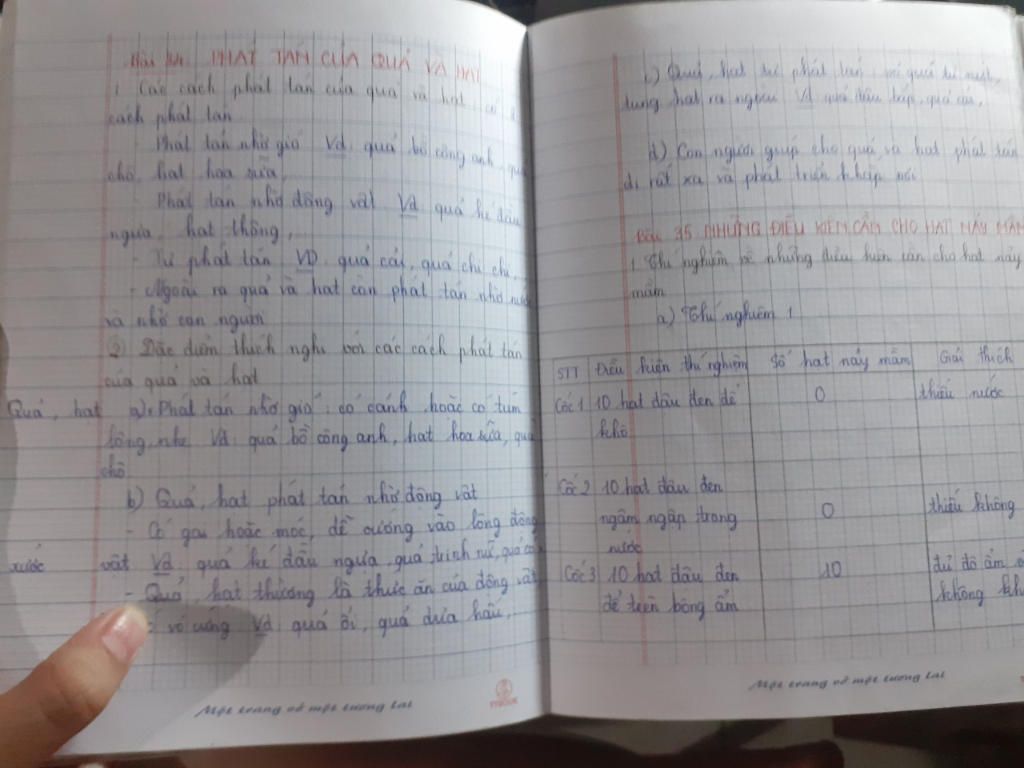 Bài 34: PHÁT TÁN CỦA QUẢ VÀ HẠT
1. Các cách phát tán của quả và hạt có
cách phát tán
- Phát tán nhờ gió Vd: quả bồ công anh, quả
chò, hạt hoa sữa,
- Phát tán nhờ động vật Vd quả ké đầu
ngựa, hạt thông,...
- Tự phát tán VD quả cải, quả chi chi,
- Ngoài ra quả và hạt còn phát tán nhờ nước
và nhờ con người
2) Đặc điểm thích nghi với các cách phát tán
của quả và hạt
Quả, hạt a) Phát tán nhờ gió: có cánh hoặc có túm
lông, nhẹ Vd: quả bồ công anh, hạt hoa sữa, quả
chò
b) Quả, hạt phát tán nhờ động vật
- Có gai hoặc móc, dễ vướng vào lông động
vật Vd: quả ké đầu ngựa, quả trinh nữ, quả cỏ
xước
- Quả, hạt thường là thức ăn của động vật
vỏ cứng Vd: quả ổi, quả dưa hấu,...
Một trang vở một tương lai
c) Quả, hạt tự phát tán: vỏ quả tự nứt,
tung hạt ra ngoài Vd quả đậu bắp, quả cải,
d) Con người giúp cho quả và hạt phát tán
đi rất xa và phát triển khắp nơi
Bài 35 NHỮNG ĐIỀU KIỆN CẦN CHO HẠT NẢY MẦM
1. Thí nghiệm về những điều kiện cần cho hạt nảy
mầm
a) Thí nghiệm 1
STT Điều kiện thí nghiệm Số hạt nảy mầm Giải thích
Cốc 1 10 hạt đậu đen để 0 thiếu nước
khô
Cốc 2 10 hạt đậu đen
ngâm ngập trong 0 thiếu không
nước
Cốc 3 10 hạt đậu đen 10 đủ độ ẩm
để trên bông ẩm không khí
Một trang vở một tương lai